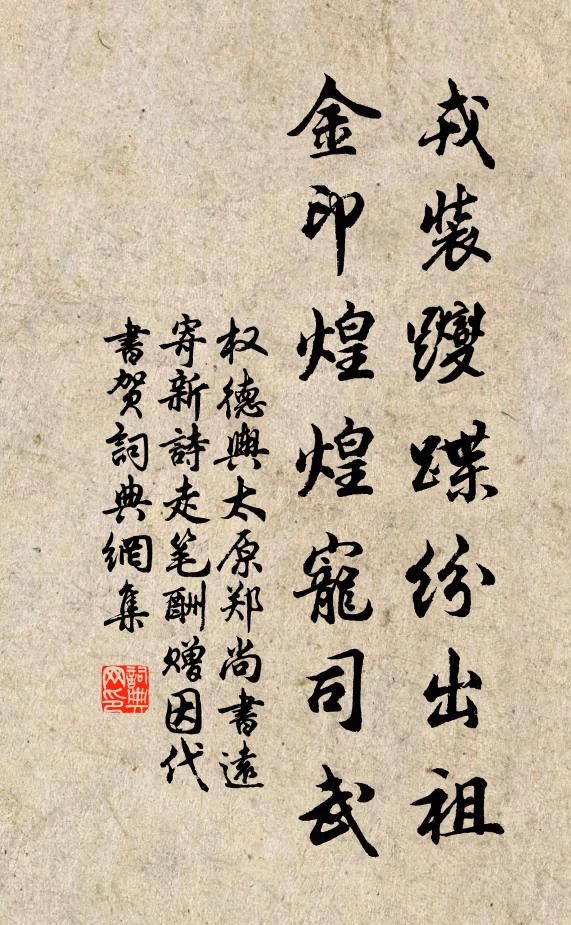 戎装躞蹀纷出祖
金印煌煌寵司武
权德輿太原郑尚書遠
寄新詩走笔酬赠因代
書贺詞典網集
詞典
网印